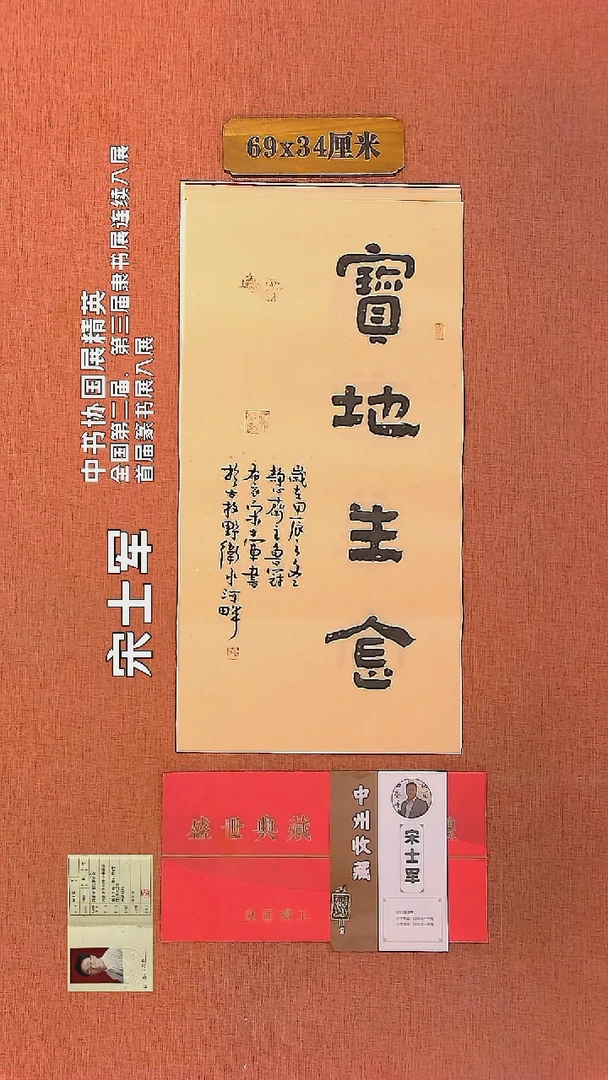 69x34厘米
寶地生金
歲在甲辰之冬
静心齋主魯冠
宋士軍書
於古牧野衛水河畔
中书协国展精英
全国第二届、第三届隶书展连续入展
首届篆书展入展
宋士军
盛世典藏
中州收藏
宋士军